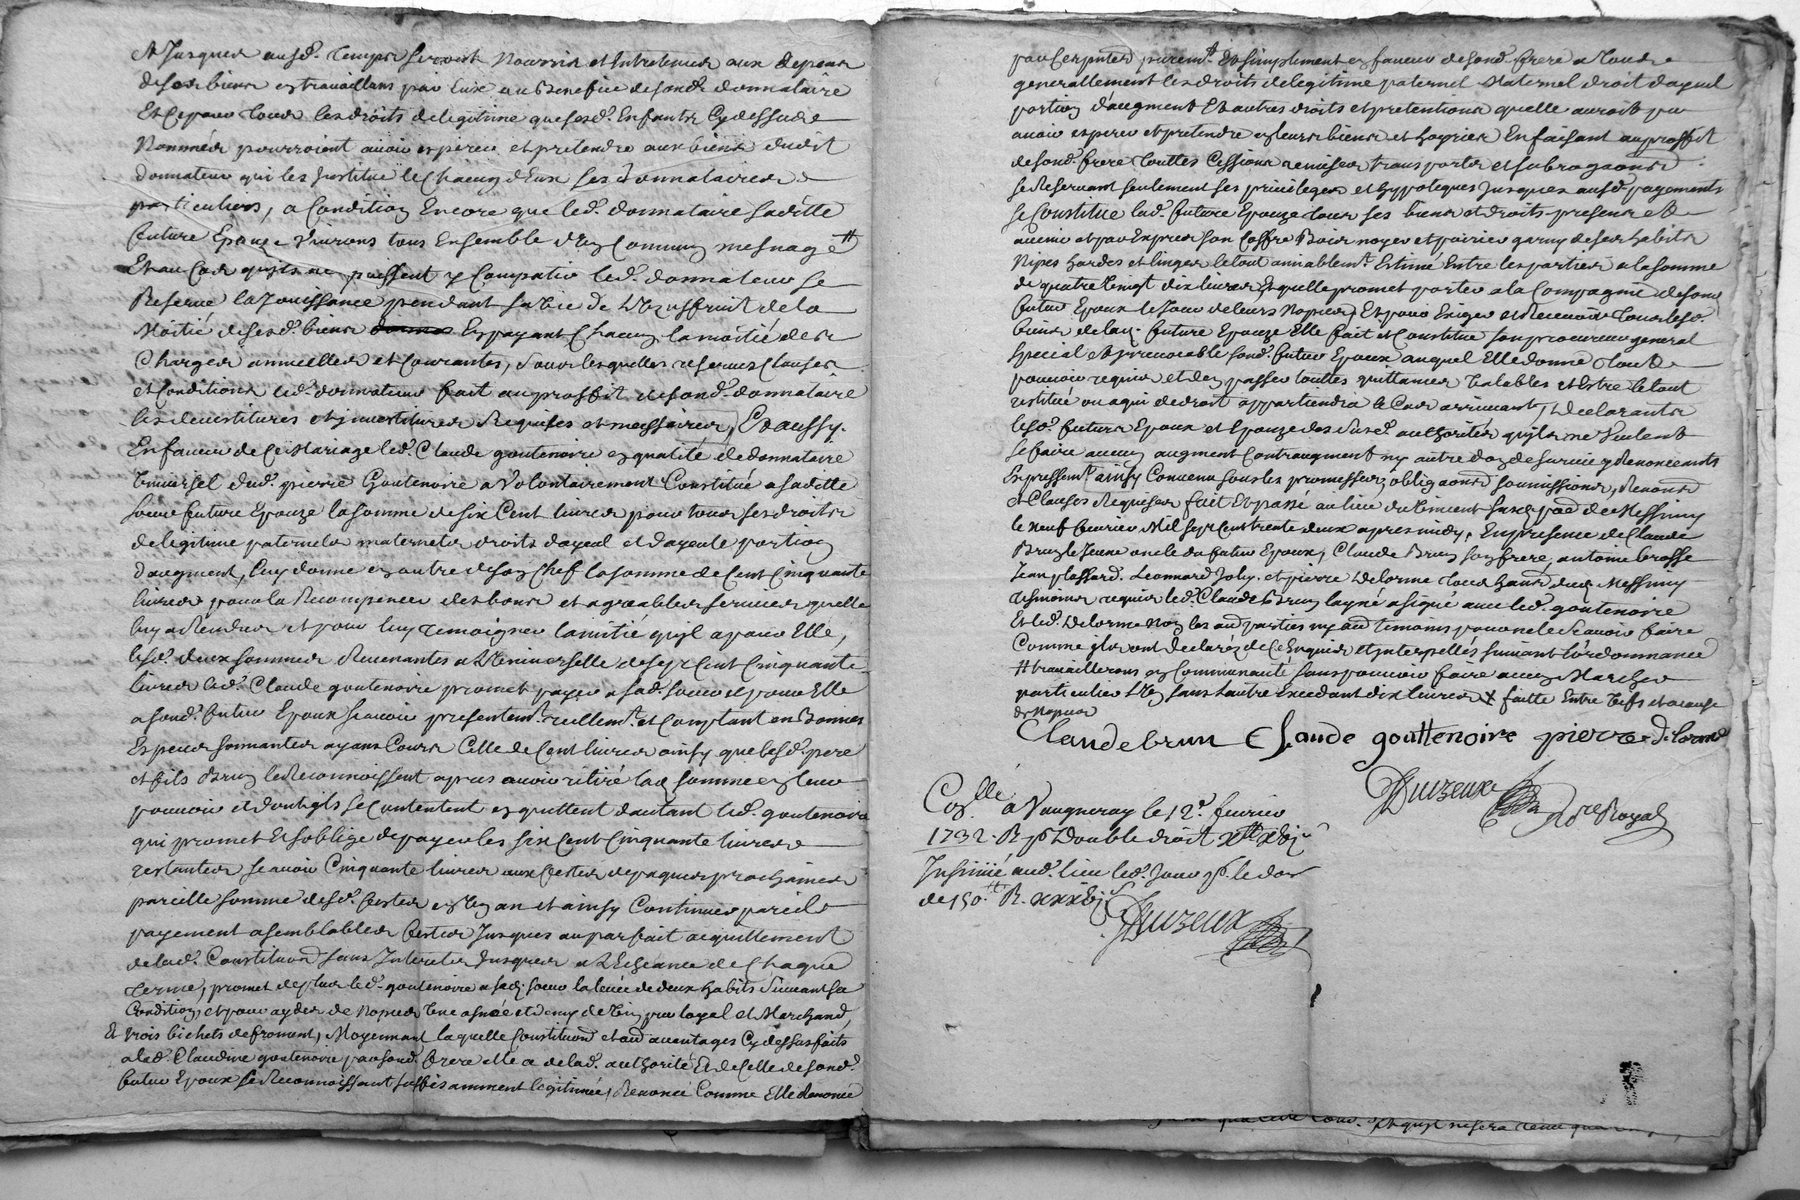 et jusques ausd. temps seront nourris et entretenus aux depens
de ses biens en travaillans par eux au benefice desond. donnataire
et ce pour tous les droits de legitime que sesd. enfants cy dessus
nommés pourroient avoir espérer et pretendre aux biens dudit
donnateur qui les institue le chacun d'eux ses donnataires
particuliers, a condition encore que led. donnataire saditte
future Epouze vivrons tous ensemble d'un commun mesnage #
Et au cas qu'ils ne puissent y compatir led. donnateur se
Reserve la jouissance pendant sa vie de l'usufruit de la
Moitié de sesd. biens en payant chacun la moitié des
Charges annuelles et courantes, sous lesquelles reserves clauses
et conditions led. donnateur fait au proffit desond. donnataire
les devestitures et investitures Requises et necessaires, Et aussy
En faveur de ce Mariage led. Claude goutenoire en qualité de donnataire
universel dud. pierre Goutenoire a volontairement Constitué a saditte
soeur future Epouze la somme de six cent livres pour tous ses droits
de legitime paternels maternels droits dayeul et dayeule portion
daugment, luy donne en outre de son chef la somme de cent cinquante
livres pour la Recompence des bons et agreables services quelle
luy a Rendus et pour luy temoigner lamitié qu'il a pour Elle,
lesd. deux sommes Revenantes a l'universelle de sept cent cinquante
livres led. Claude goutenoire promet payer a sad. soeur et pour Elle
a sond. futur Epoux scavoir presentemt. reellemt. et comptant en bonnes
Especes sonnantes ayans cours celle de cent livres ainsy que lesd. pere
et fils Brun le Reconnoissent apres avoir retiré lad. somme en leur
pouvoir et dont ils se contentent en quittent d'autant led. goutenoire
qui promet et soblige de payer les six cent cinquante livres
restantes scavoir cinquante livres aux festes de paques prochaines
pareille somme desd. festes en un an et ainsy continuer pareils
payement a semblables festes jusques au parfait acquittement
de lad. Constitution sans interets jusques a l'echeance de chaque
terme, promet de plus led. goutenoire a sad. soeur la levée de deux habits suivant sa
Condition, et pour ayder des nopces une asnée et demy de vin pur loyal et Marchand
et trois bichets de froment, Moyennant laquelle Constitution et aud. avantages cy dessus faits
a lad. Claudine goutenoire par sond. frere elle a de lad. authorité et de celle de sond.
futur Epoux se Reconnoissant suffisamment legitimée, Renoncé comme Elle Renonce
par ces presentes purement et simplement en faveur de sond. frere a tous
generallement les droits de legitime paternel Maternel droit dayeul
portion daugment et autres droits et pretentions quelle auroit pu
avoir esperer et pretendre en leurs biens et hoyries En faisant au proffit
de sond. frere touttes cessions remises transports et subrogaons
se Reservant seulement ses privileges et hypoteques jusques ausd. payements
se Constitue lad. future Epouze tous ses biens et droits presens et
avenir et par Exprés son coffre Bois noyer et poirier garny de ses habits
Nipes hardes et linges le tout amiablemt. Estimé entre les parties a la somme
de quatre vingt dix livres, et quelle promet porter a la compagnie de son
futur Epoux le jour de leurs Nopces, et pour Exiger et Recevoir tous lesd.
biens de lad. future Epouze Elle fait et constitue son procureur general
special et irrevocable sond. futur Epoux auquel Elle donne tout
pouvoir requis et den passer touttes quittances valables et estre le tout
restitué ou a qui de droit appartiendra le cas arrivant, declarants
lesd. futurs Epoux et Epouze des susd. authorités qu'ils ne veulent
se faire aucun augment contraugment ny autre don de survie y Renonceants
Expressemt. ainsy convenu sous les promesses, obligaons soumissions, Renons
et Clauses Requises fait et passé au lieu du liment susd. parr. de Messimy
le neuf fevrier Mil sept cent trente deux apres midy, En presence de Claude
Brun le Jeune oncle du futur Epoux, Claude Brun son frere, antoine brosse
Jean plassard. Leonnard Joly. et pierre Delorme tous hans. dud. Messimy
tesmoins requis led. Claude Brun layné a signé avec led. goutenoire
Et led. Delorme non les aud. parties ny aud. temoins pour ne le scavoir faire
Comme ils ont declarez de ce Enquis et interpellés suivant l'ordonnance
# travaillerons en communauté sans pouvoir faire aucun Marché
particulier l'un sans l'autre Excedant dix livres x faitte Entre vifs et a cause
de Nopces
Claude brun Claude gouttenoire pierre delorme
Duizeux
no.re Royal
Con.llé a Vaugneray le 12e. fevrier
1732. R. p. Double droit
Insinué aud. lieu led. jour p. le don
de 150.tt R.
Duizeux